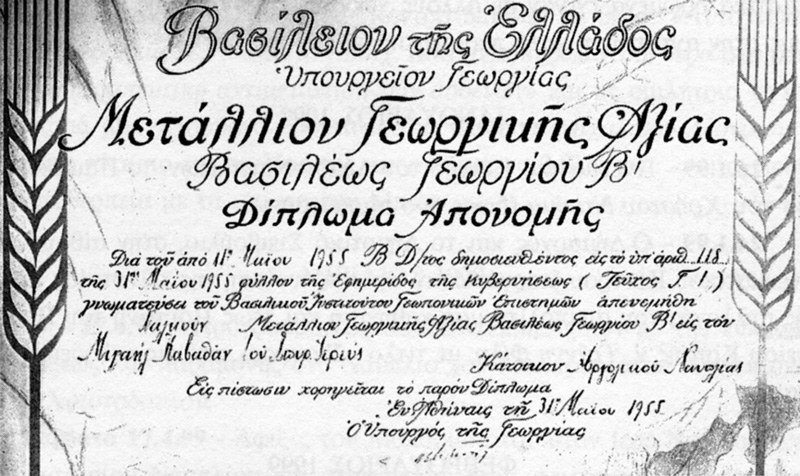 Βασίλειον τῆς Ἑλλάδος
Ὑπουργεῖον Γεωργίας
Μετάλλιον Γεωργικῆς Ἀξίας
Βασιλέως Γεωργίου Β'
Δίπλωμα Ἀπονομῆς
Διὰ τοῦ ἀπὸ 11ης Μαΐου 1955 Β.Δ/τος δημοσιευθέντος εἰς τὸ ὑπ' ἀριθ. 118
τῆς 31ης Μαΐου 1955 φύλλον τῆς Ἐφημερίδος τῆς Κυβερνήσεως (Τεῦχος Γ')
γνωματεύσει τοῦ Βασιλικοῦ Ἰνστιτούτου Γεωπονικῶν Ἐπιστημῶν ἀπενεμήθη
Χαλκοῦν Μετάλλιον Γεωργικῆς Ἀξίας Βασιλέως Γεωργίου Β' εἰς τὸν
Μιχαὴλ τοῦ Κάτοικον Ἀργολικοῦ
Εἰς πίστωσιν χορηγεῖται τὸ παρὸν Δίπλωμα
Ἐν Ἀθήναις τῇ 31ῃ Μαΐου 1955
Ὁ Ὑπουργὸς τῆς Γεωργίας